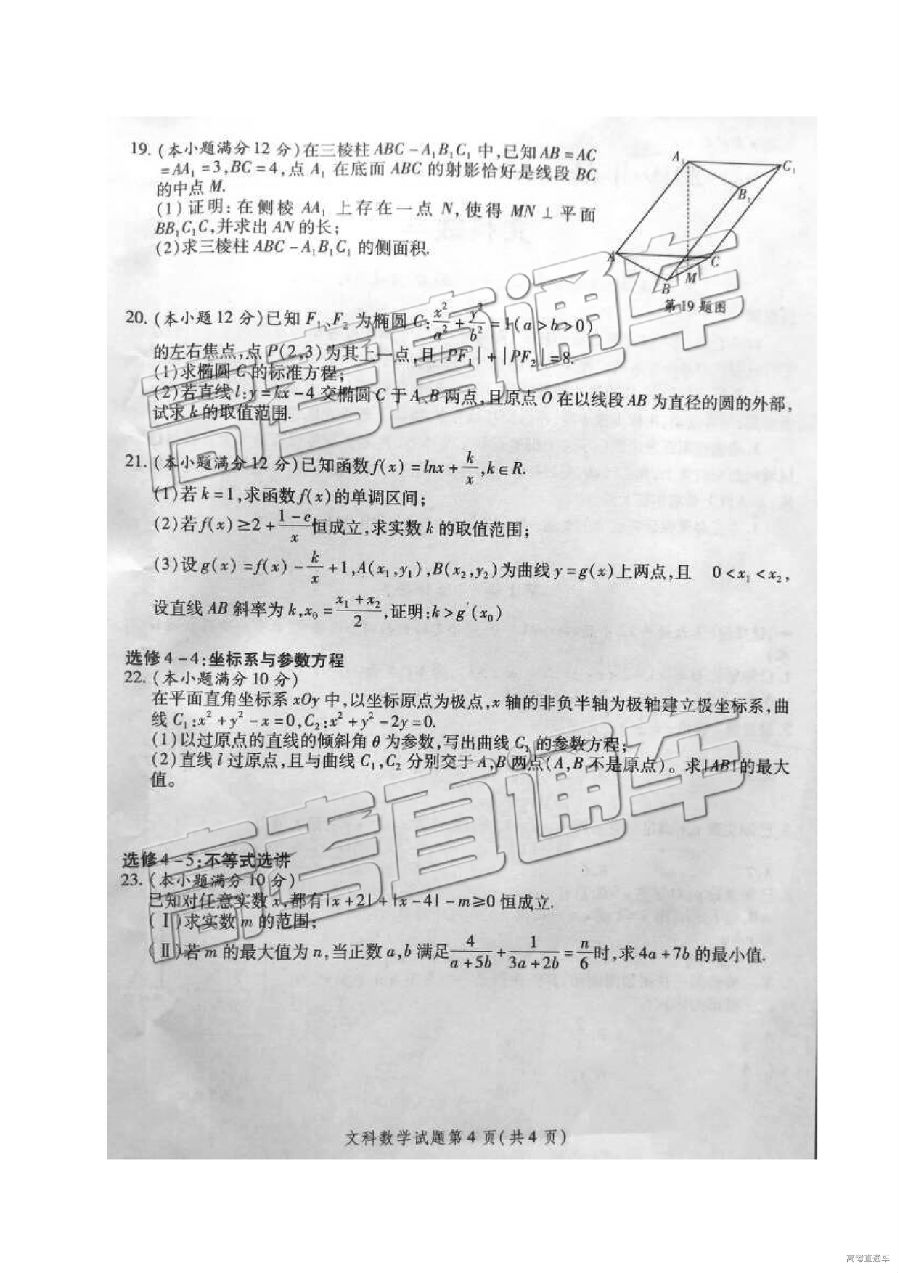 19. (本小题满分12分)在三棱柱 ABC-A₁B₁C₁ 中,已知 AB=AC
=AA₁=3,BC=4,点 A₁ 在底面 ABC 的射影恰好是线段 BC
的中点 M.
(1)证明:在侧棱 AA₁ 上存在一点 N,使得 MN⊥平面
BB₁C₁C,并求出 AN 的长;
(2)求三棱柱 ABC-A₁B₁C₁ 的侧面积.
A₁
C₁
B₁
A
C
B
M
第19题图
20. (本小题12分)已知 F₁、F₂ 为椭圆 C:x²/a²+y²/b²=1(a>b>0)
的左右焦点,点 P(2,3)为其上一点,且|PF₁|+|PF₂|=8.
(1)求椭圆 C 的标准方程;
(2)若直线 l:y=kx-4 交椭圆 C 于 A、B 两点,且原点 O 在以线段 AB 为直径的圆的外部,
试求 k 的取值范围.
21. (本小题满分12分)已知函数 f(x)=lnx+k/x,k∈R.
(1)若 k=1,求函数 f(x)的单调区间;
(2)若 f(x)≥2+(1-e)/x 恒成立,求实数 k 的取值范围;
(3)设 g(x)=f(x)-k/x+1,A(x₁,y₁),B(x₂,y₂)为曲线 y=g(x)上两点,且 0<x₁<x₂,
设直线 AB 斜率为 k,x₀=(x₁+x₂)/2,证明:k>g'(x₀)
选修4-4:坐标系与参数方程
22. (本小题满分10分)
在平面直角坐标系 xOy 中,以坐标原点为极点,x 轴的非负半轴为极轴建立极坐标系,曲
线 C₁:x²+y²-x=0,C₂:x²+y²-2y=0.
(1)以过原点的直线的倾斜角 θ 为参数,写出曲线 C₁ 的参数方程;
(2)直线 l 过原点,且与曲线 C₁,C₂ 分别交于 A,B 两点(A,B 不是原点)。求|AB|的最大
值。
选修4-5:不等式选讲
23. (本小题满分10分)
已知对任意实数 x,都有|x+2|+|x-4|-m≥0 恒成立.
(Ⅰ)求实数 m 的范围;
(Ⅱ)若 m 的最大值为 n,当正数 a,b 满足 4/(a+5b)+1/(3a+2b)=n/6 时,求 4a+7b 的最小值.
文科数学试题第4页(共4页)
高考直通车
高考直通车
高考直通车